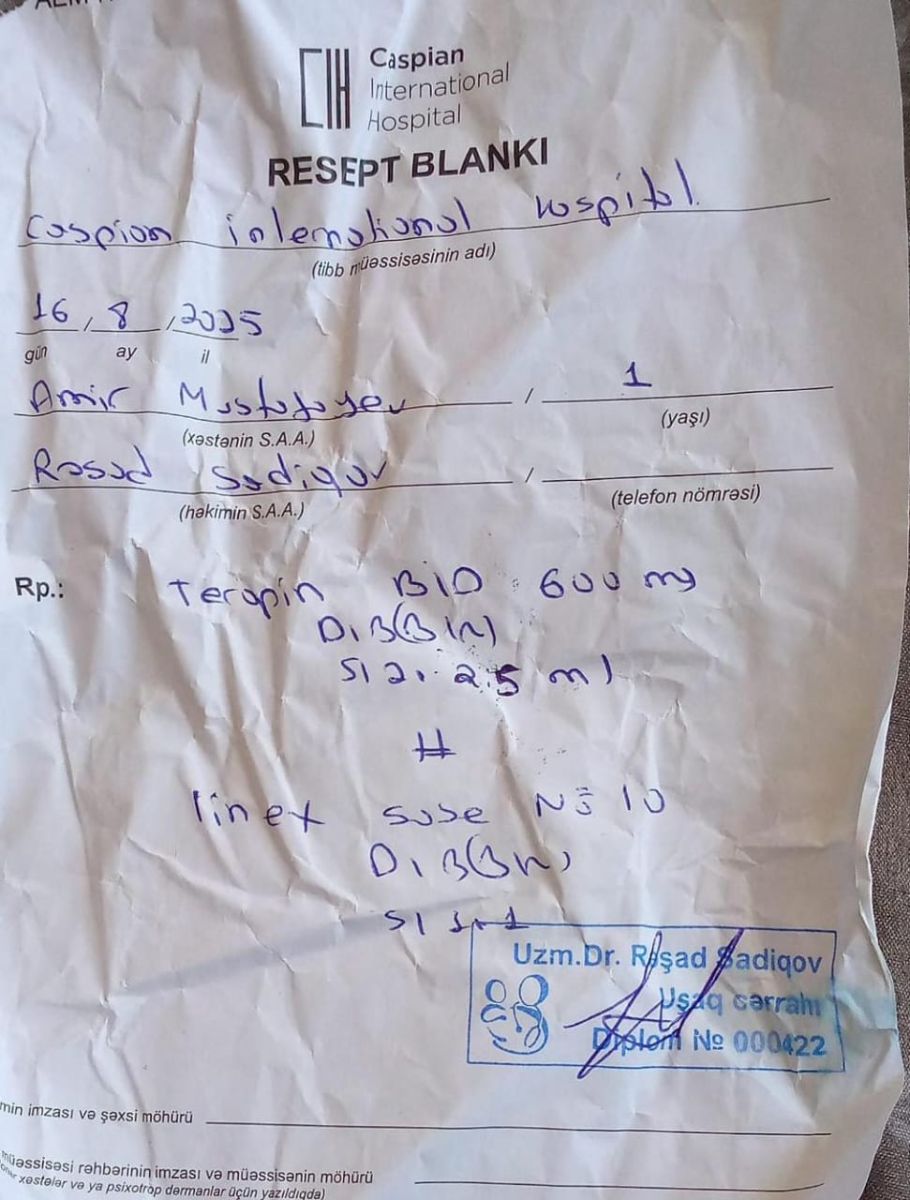 Caspian
International
Hospital
RESEPT BLANKI
Caspian international hospital.
(tibb müəssisəsinin adı)
16, 8, 2025
gün ay il
Amir Mustafayev / 1
(xəstənin S.A.A.) (yaşı)
Rəsad Sadiqov /
(həkimin S.A.A.) (telefon nömrəsi)
Rp.: Terapin BID 600 mg
2.5 ml
#
linex N 10
Uzm.Dr. Rəşad Sadiqov
Uşaq cərrahı
Diplom № 000422
imzası və şəxsi möhürü
müəssisəsi rəhbərinin imzası və müəssisənin möhürü
xəstələr və ya psixotrop dərmanlar üçün yazıldıqda)